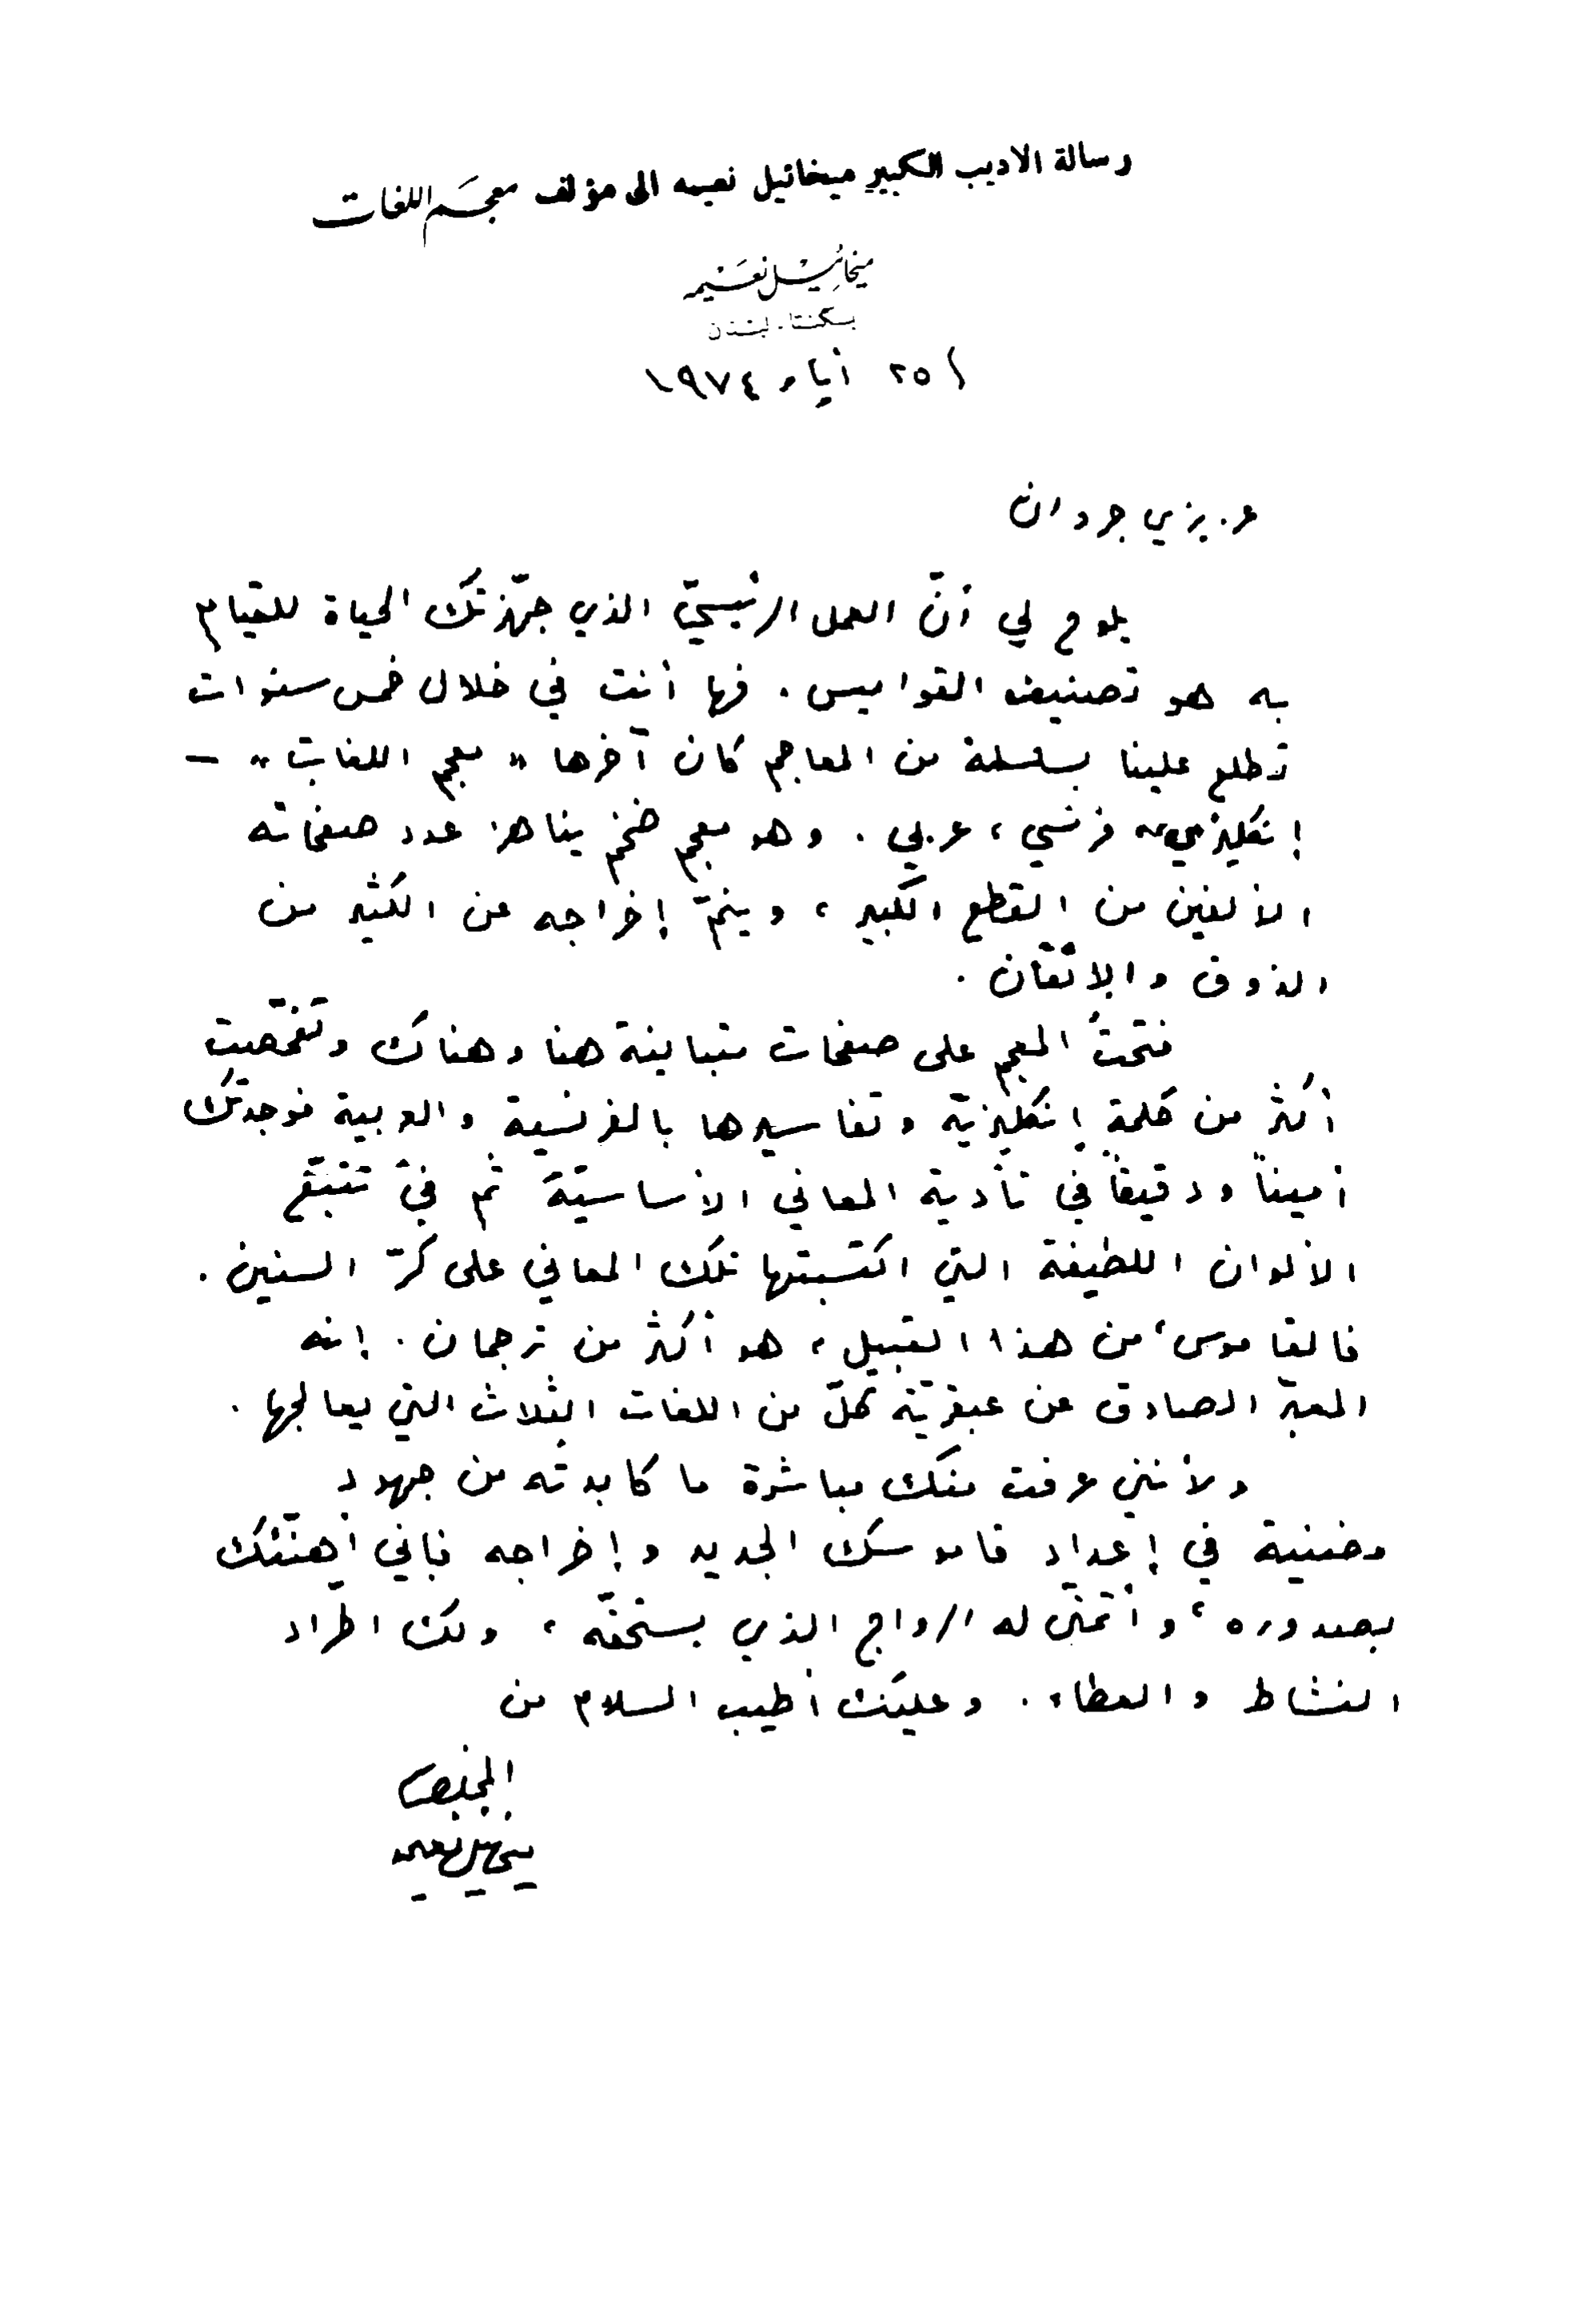 رسالة الاديب الكبير ميخائيل نعيمه الى مؤلف معجَم اللغات
ميخائيل نعَيمه
بسكنتا - لبنان
٢٥ أيار ١٩٧٤
عزيزي جروان
يلوح لي أنّ العمل الرئيسيّ الذي جهّزتك الحياة للقيام
به هو تصنيف القواميس . فها أنت في خلال خمس سنوات
تطلع علينا بسلسلة من المعاجم كان آخرها « معجم اللغات » –
إنكليزي ، فرنسي ، عربي . وهو معجم ضخم يناهز عدد صفحاته
الألفين من القطع الكبير ، وينمّ إخراجه عن الكثير من
الذوق والإتقان .
فتحتُ المعجم على صفحات متباينة هنا وهناك وتفحّصت
أكثر من كلمة إنكليزيّة وتفاسيرها بالفرنسية والعربية فوجدتك
أميناً ودقيقاً في تأدية المعاني الأساسيّة ثم في تتبّع
الألوان اللطيفة التي اكتسبتها تلك المعاني على كرّ السنين .
فالقاموس ، من هذا القبيل ، هو أكثر من ترجمان . إنه
المعبّر الصادق عن عبقريّة كلّ من اللغات الثلاث التي يعالجها .
ولأنني عرفت منك مباشرة ما كابدته من جهود
مضنية في إعداد قاموسك الجديد وإخراجه فإني أهنّئك
بصدوره ، وأتمنّى له الرواج الذي يستحقّه ، ولك اطّراد
النشاط والعطاء . وعليك أطيب السلام من
المخلص
ميخائيل نعيمه